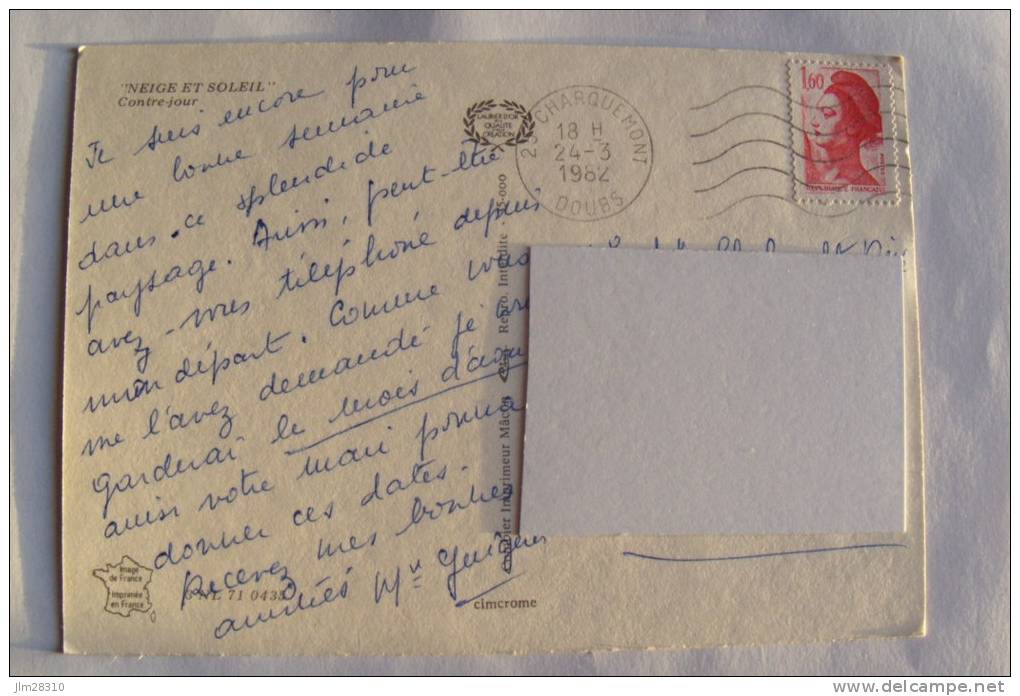 "NEIGE ET SOLEIL"
Contre-jour
Je suis encore pour
une bonne semaine
dans ce splendide
paysage. Aussi, peut-être
avez-vous téléphoné depuis
mon départ. Comme vous
me l'avez demandé je
garderai le mois d'août
ainsi votre mari pourra
donner ces dates.
Recevez mes bonnes
amitiés
LAURIER D'OR
DE
QUALITÉ
CRÉATION
25 CHARQUEMONT
18 H
24-3
1982
DOUBS
1,60
REPUBLIQUE FRANCAISE
Imprimeur Mâcon
Repro. Interdite
Image
de France
Imprimée
en France
71 0435
cimcrome
jlm28310
http://www.delcampe.net